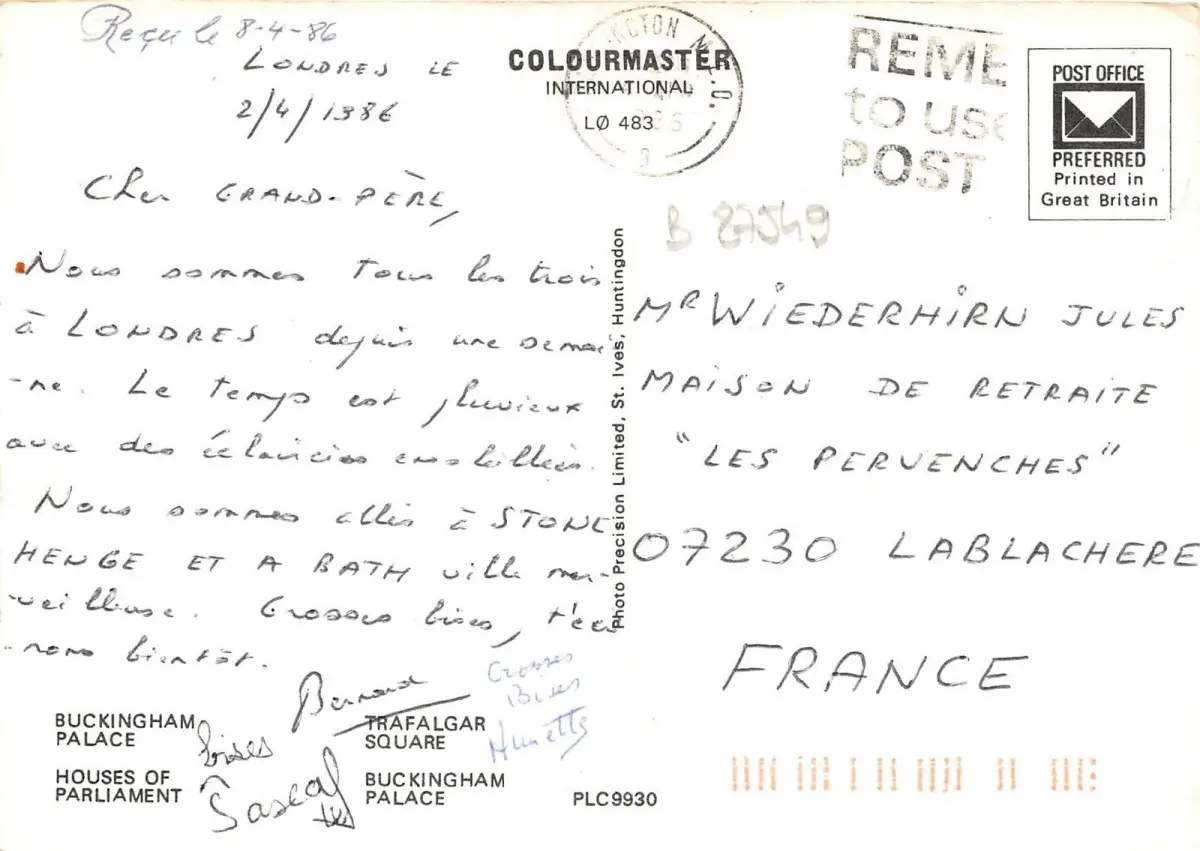 Reçu le 8-4-86
LONDRES LE
2/4/1986
Cher GRAND-PÈRE,
Nous sommes tous les trois
à LONDRES depuis une semai-
-ne. Le temps est pluvieux
avec des éclaircies ensoleillées.
Nous sommes allés à STONE
HENGE ET A BATH ville mer-
-veilleuse. Grosses bises, t'écri
-rons bientôt.
Bernard
Grosses
Bises
bises
Pascal
BUCKINGHAM
PALACE
HOUSES OF
PARLIAMENT
TRAFALGAR
SQUARE
BUCKINGHAM
PALACE
PLC9930
COLOURMASTER
INTERNATIONAL
LØ 483
Photo Precision Limited, St. Ives, Huntingdon
REME
to use
POST
POST OFFICE
PREFERRED
Printed in
Great Britain
B 27549
MR WIEDERHIRN JULES
MAISON DE RETRAITE
"LES PERVENCHES"
07230 LABLACHERE
FRANCE